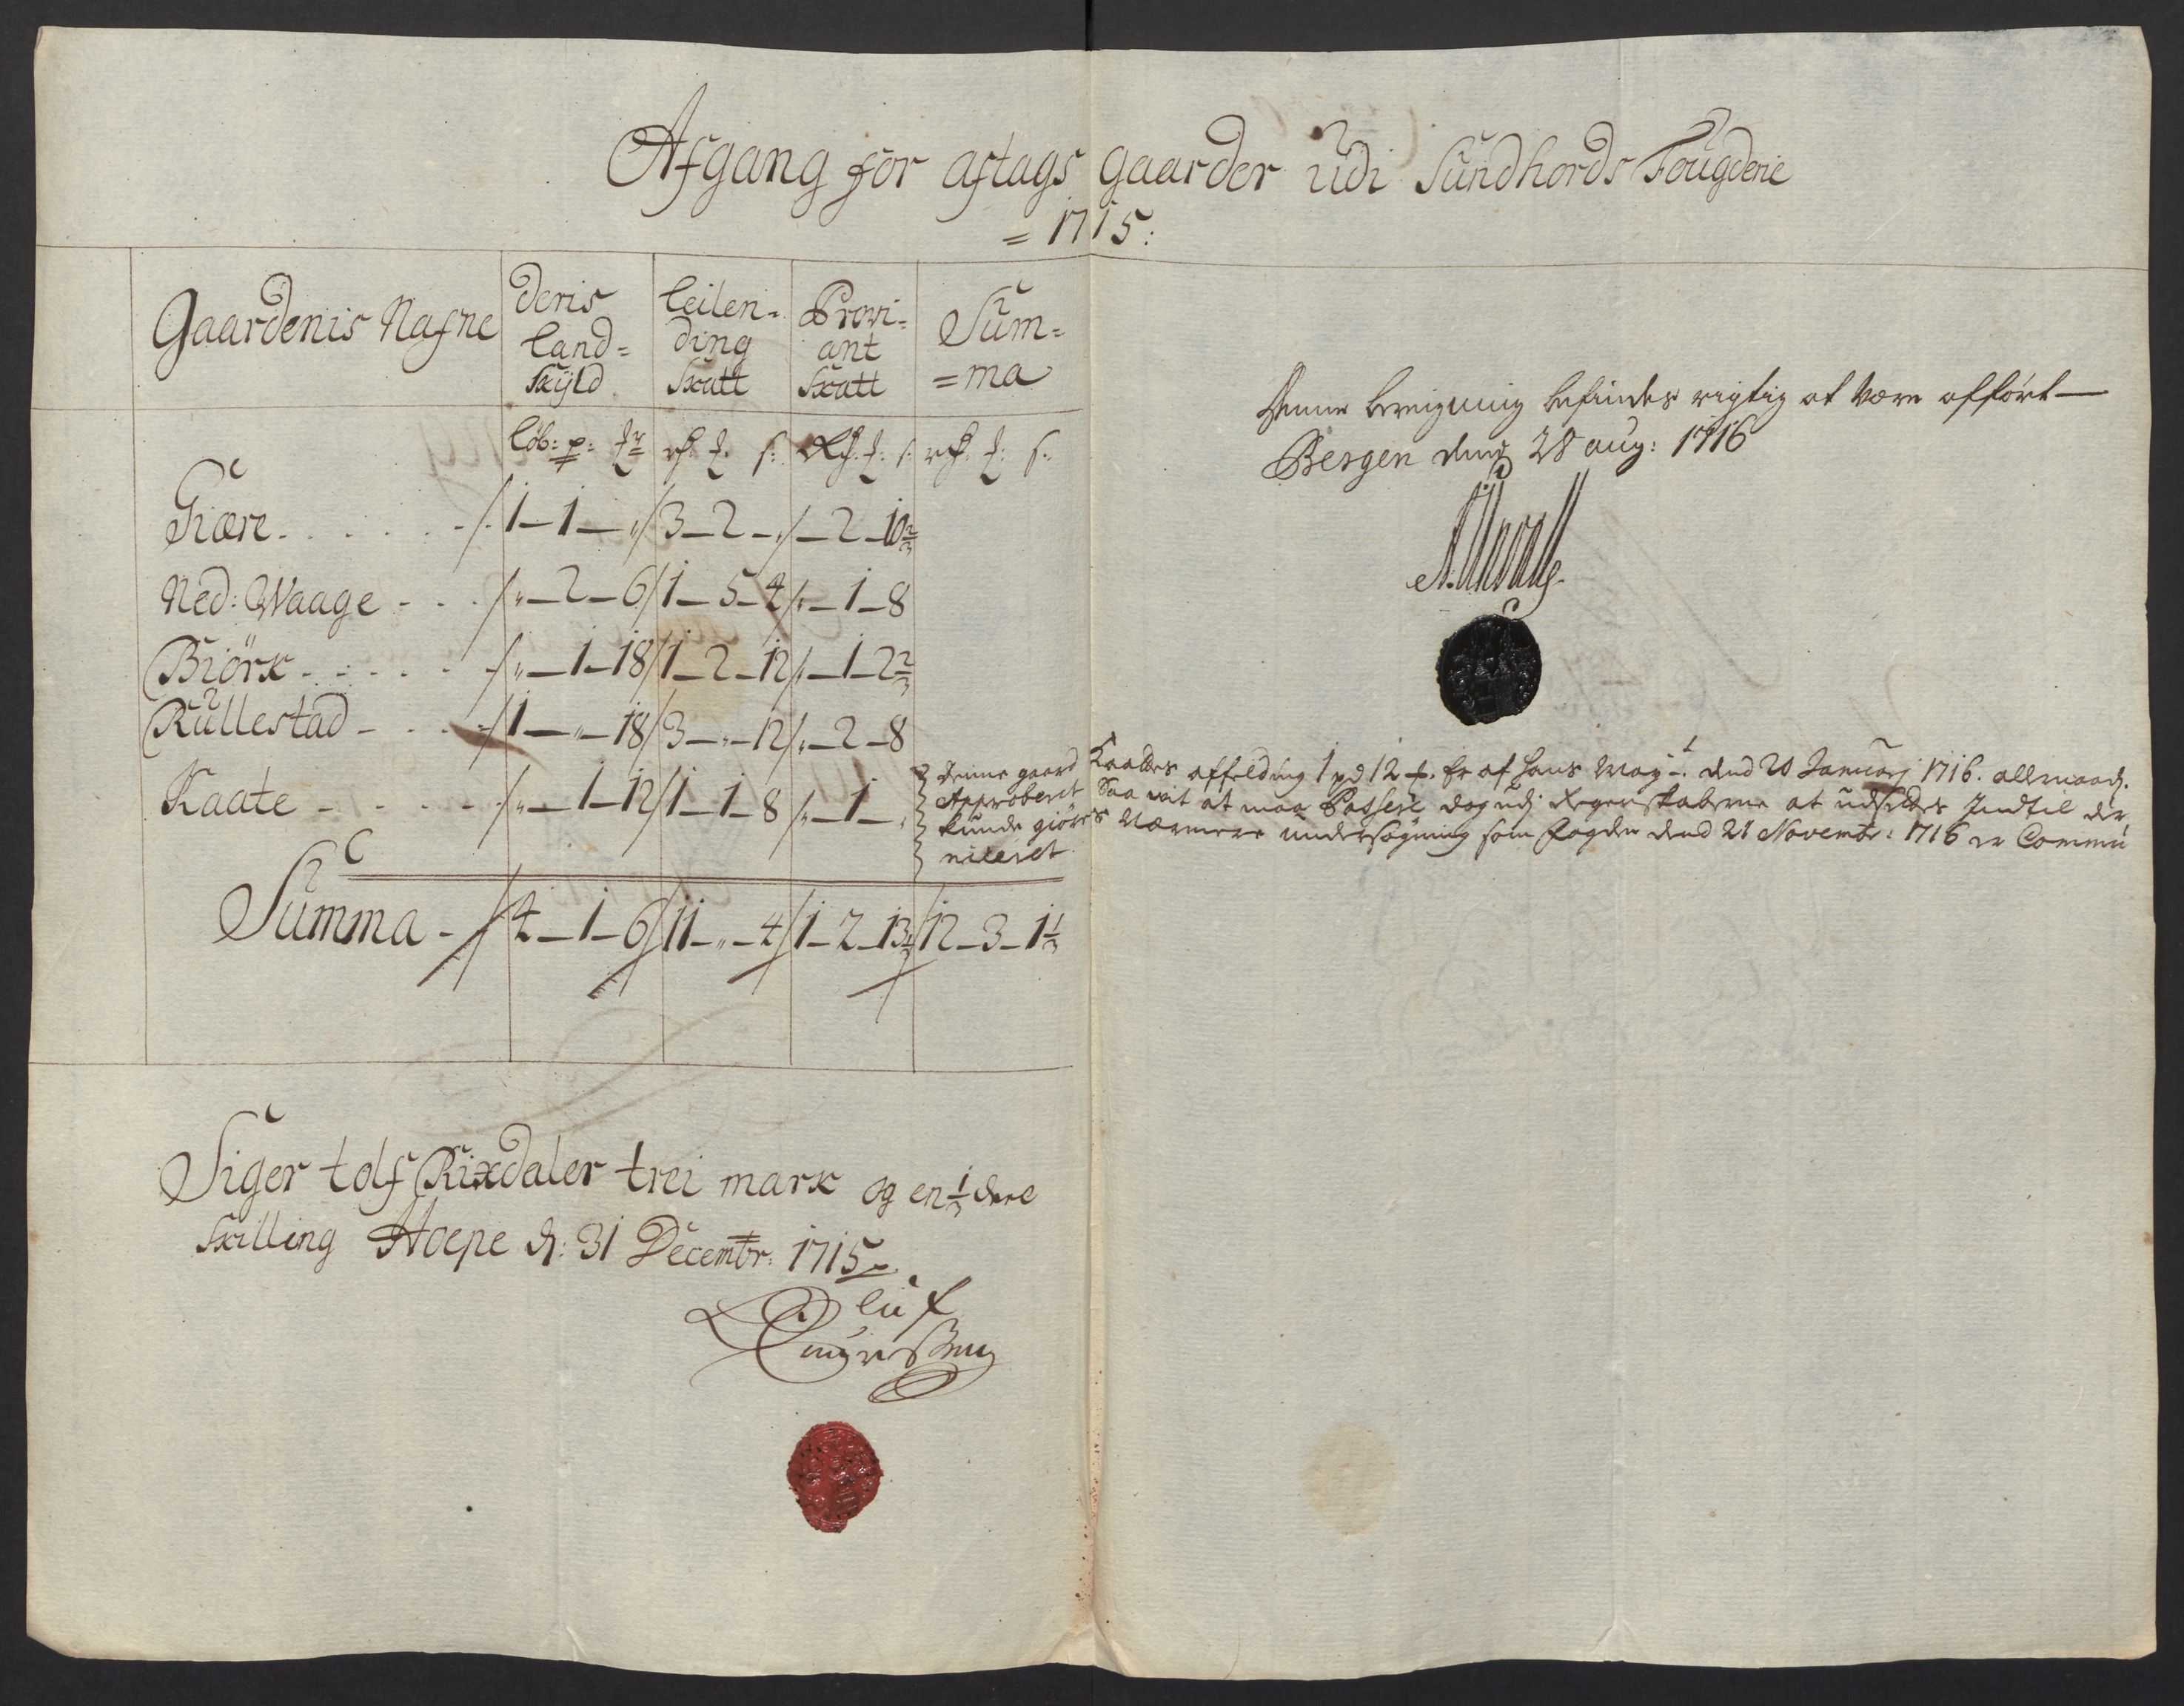 Afgang for aftags gaarder udi Sundhords Fougderie
= 1715:
Gaardenis Nafne
Deris Land= Skyld
Leilen= ding Skatt
Provi= ant Skatt
Sum= =ma
Löb: p: rd s: rd s: rd s:
Giære - - - 1 - 1 - " / 3 - 2 - " / - 2 - 10 2/3
Ned: Waage - - - " - 2 - 6 / 1 - 5 - 4 / " - 1 - 8
Biörk - - - " - 1 - 18 / 1 - 2 - 12 / " - 1 - 2 2/3
Rullestad - - - 1 - " - 18 / 3 - " - 12 / " - 2 - 8
Kaate - - - " - 1 - 12 / 1 - 1 - 8 / " - 1 - "
Summa - 4 - 1 - 6 / 11 - " - 4 / 1 - 2 - 13 1/3 / 12 - 3 - 1 1/3
Siger tolf Rixdaler trei mark og en 1/3 deel
Skilling Hoepe d: 31 Decembr: 1715
Oluf
Denne bereigning befindes rigtig at være afført
Bergen dend 28 aug: 1716
Denne gaard Kaates affelding 1 pd 12 er af Hans May: dend 20 Januarj 1716. allernaad:
Approberet Saa vit at maa Passere dog udj Regenskaberne at udsettes Indtil der
kunde giöres Nærmere undersögning som fogden dend 21 Novembr: 1716 er Commu
niceret